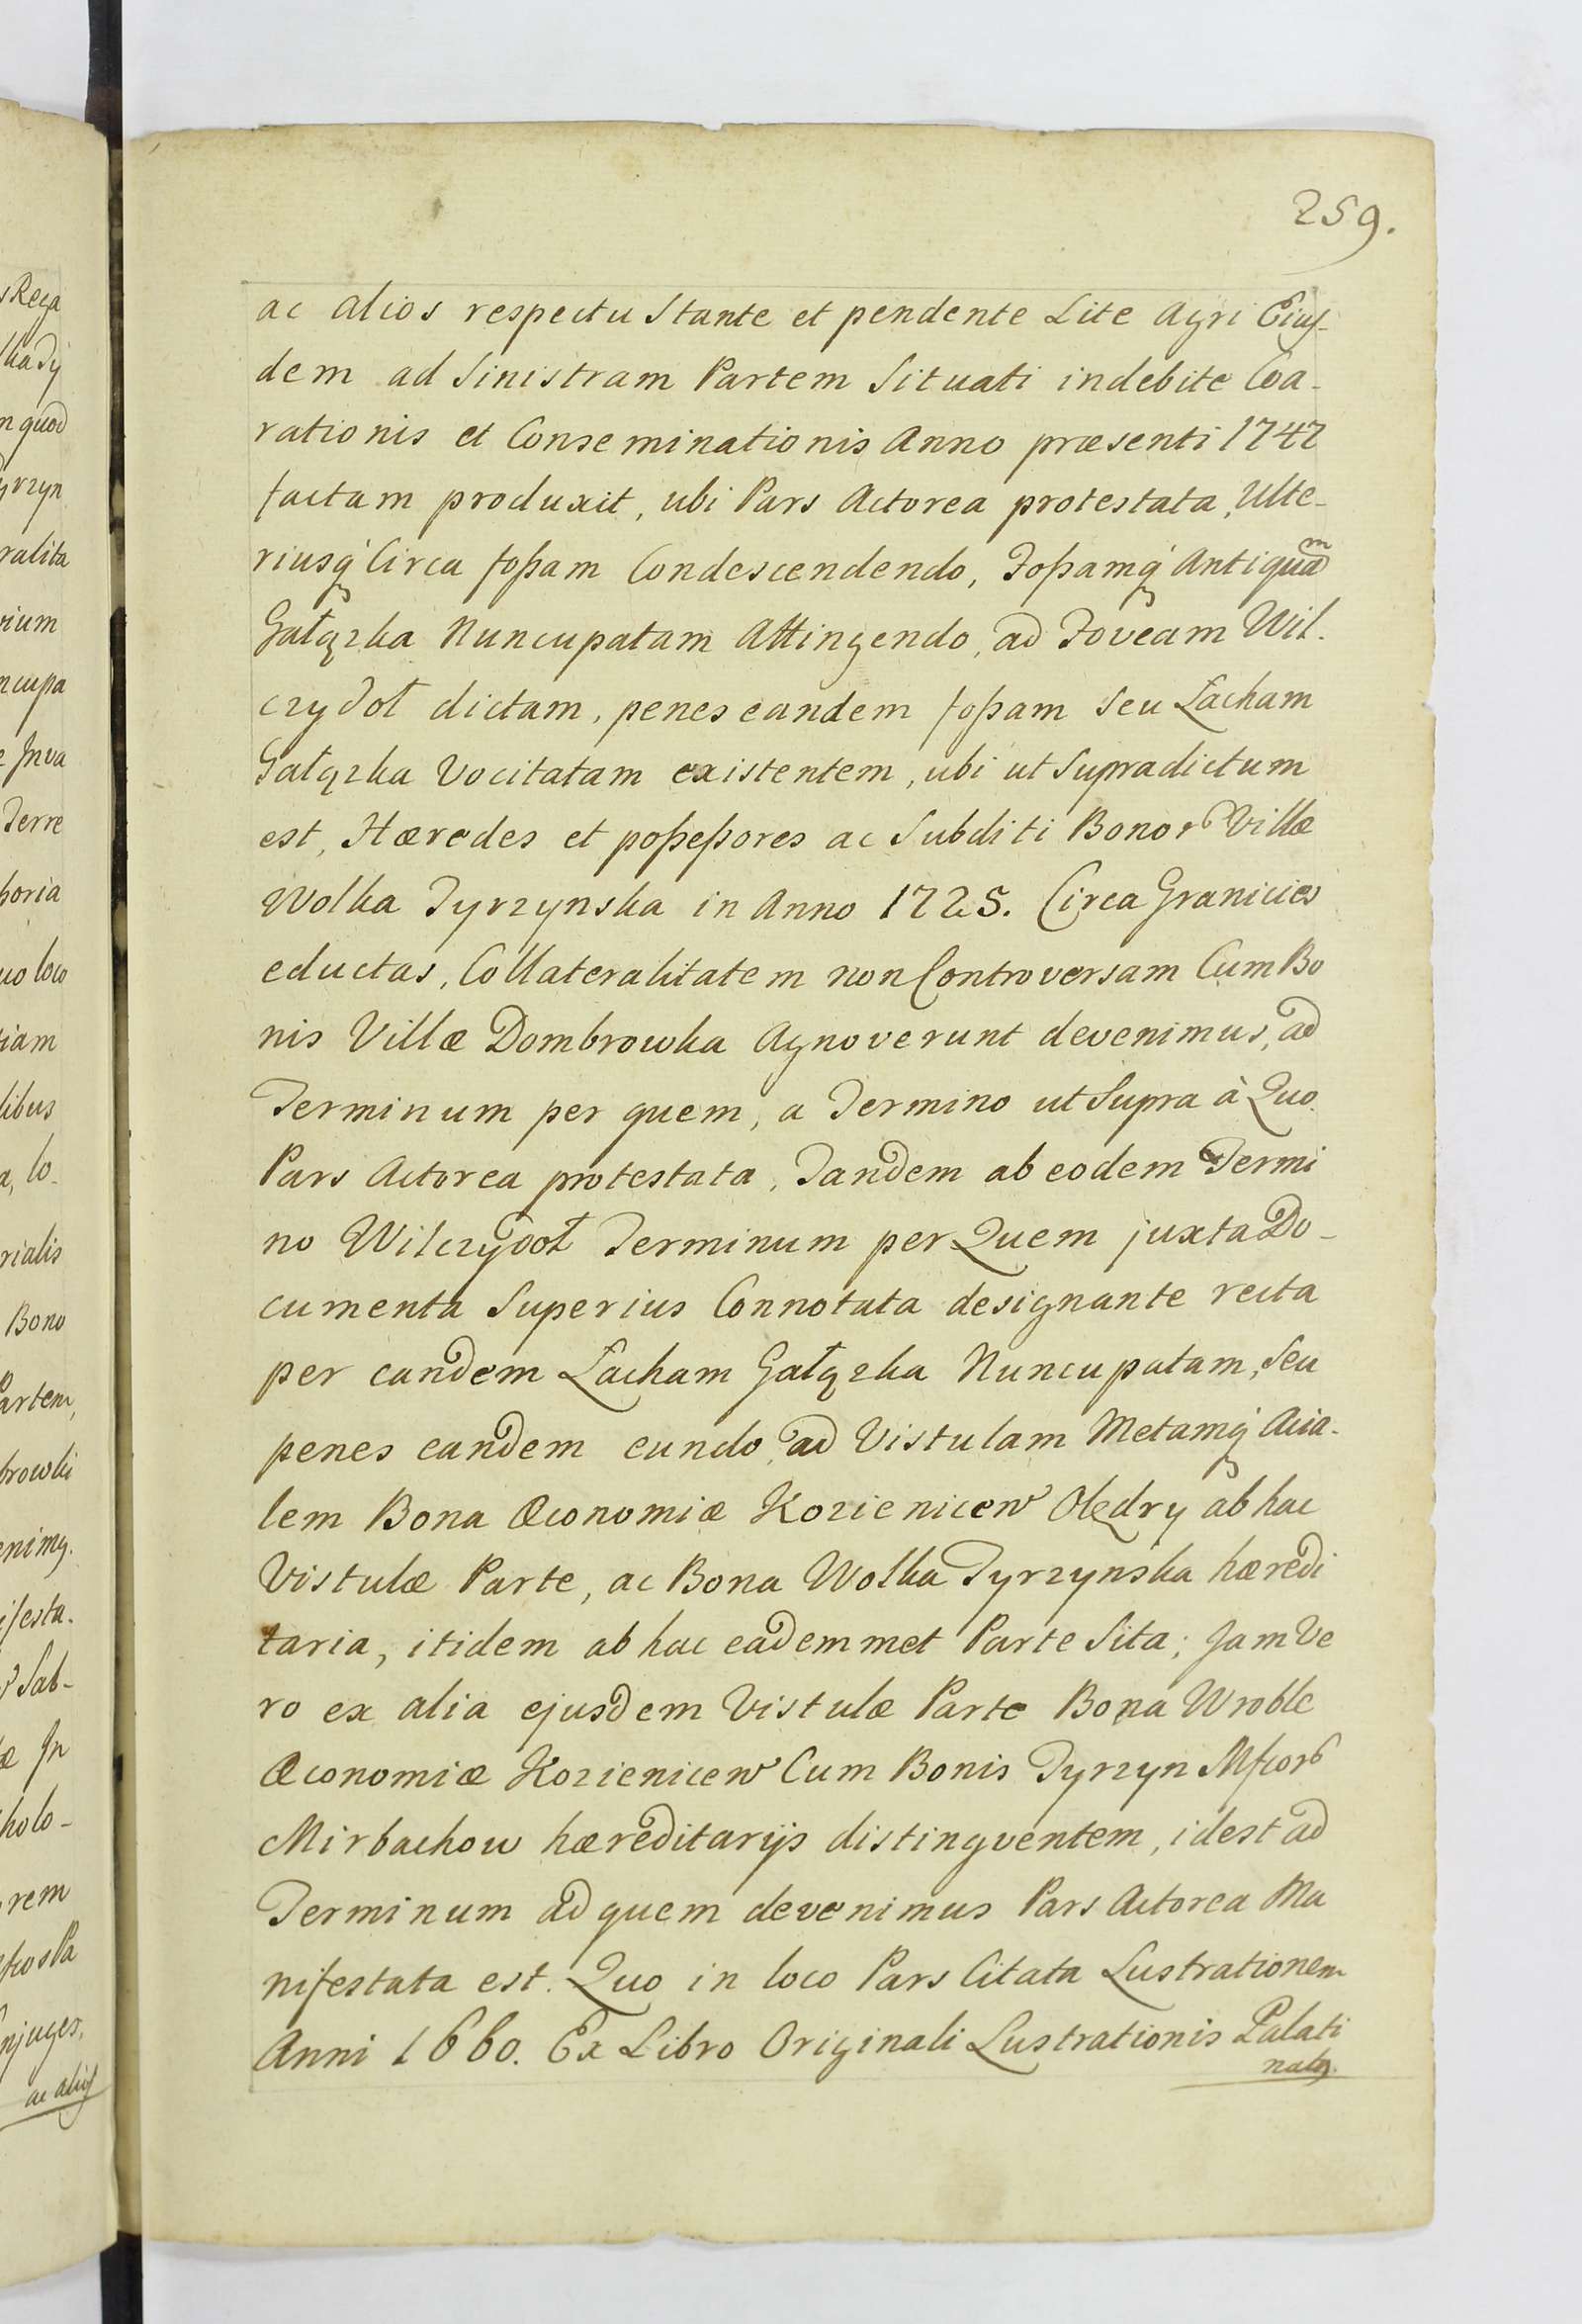 259.
ac alios respectu Stante et pendente Lite Agri Eius-
dem ad Sinistram Partem Situati indebite Coa-
rationis et Conseminationis Anno præsenti 1747
factam produxit, ubi Pars Actorea protestata, Ulte-
riusq́ Circa foßam Condescendendo, Foßamq́ Antiquam
Gałązka Nuncupatam Attingendo, ad Foveam Wil-
czydoł dictam, penes eandem foßam seu Łacham
Gałązka Vocitatam existentem, ubi ut Supradictum
est, Hæredes et poßeßores ac Subditi Bonor Villæ
Wolka Tyrzynska in Anno 1725. Circa Granicies
eductas, Collateralitatem non Controversam Cum Bo
nis Villæ Dombrowka Agnoverunt devenimus, ad
Terminum per quem, a Termino ut Supra à Quo
Pars Actorea protestata, Tandem ab eodem Termi
no Wilczydoł Terminum per Quem juxta Do-
cumenta Superius Connotata designante recta
per eandem Łacham Gałązka Nuncupatam, Seu
penes eandem eundo, ad Vistulam Metamq́ Acia-
lem Bona Œconomiæ Kozienicew Olędry ab hac
Vistulæ Parte, ac Bona Wolka Tyrzynska hæredi
taria, itidem ab hac eademmet Parte Sita; Jam Ve
ro ex alia ejusdem Vistulæ Parte Bona Wroble
Œconomiæ Kozienicew Cum Bonis Tyrzyn Mfcor
Mirbachow hæreditarijs distingventem, idest ad
Terminum ad quem devenimus Pars Actorea Ma
nifestata est. Quo in loco Pars Citata Lustrationem
Anni 1660. Ex Libro Originali Lustrationis Palati
natq.